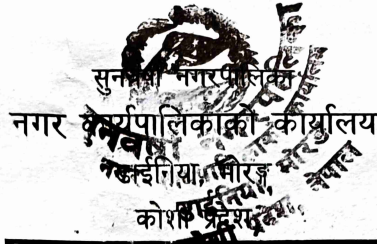 सुनवर्षी नगरपालिका
नगर कार्यपालिकाको कार्यालय
डाईनिया, मोरङ
कोशी प्रदेश, नेपाल